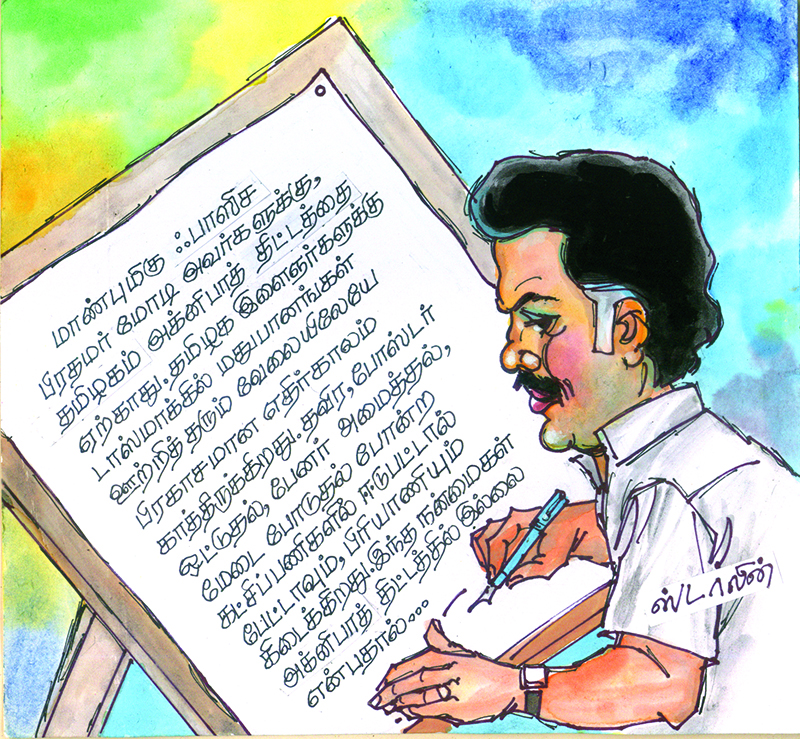 மாண்புமிகு ஃபாஸிச
பிரதமர் மோடி அவர்களுக்கு,
தமிழகம் அக்னிபாத் திட்டத்தை
ஏற்காது. தமிழக இளைஞர்களுக்கு
டாஸ்மாக்கில் மதுபானங்கள்
ஊற்றித் தரும் வேலையிலேயே
பிரகாசமான எதிர்காலம்
காத்திருக்கிறது. தவிர, போஸ்டர்
ஒட்டுதல், பேனர் அமைத்தல்,
மேடை போடுதல் போன்ற
கட்சிப்பணிகளில் ஈடுபட்டால்
பேட்டாவும், பிரியாணியும்
கிடைக்கிறது. இந்த நன்மைகள்
அக்னிபாத் திட்டத்தில் இல்லை
என்பதால்...
ஸ்டாலின்